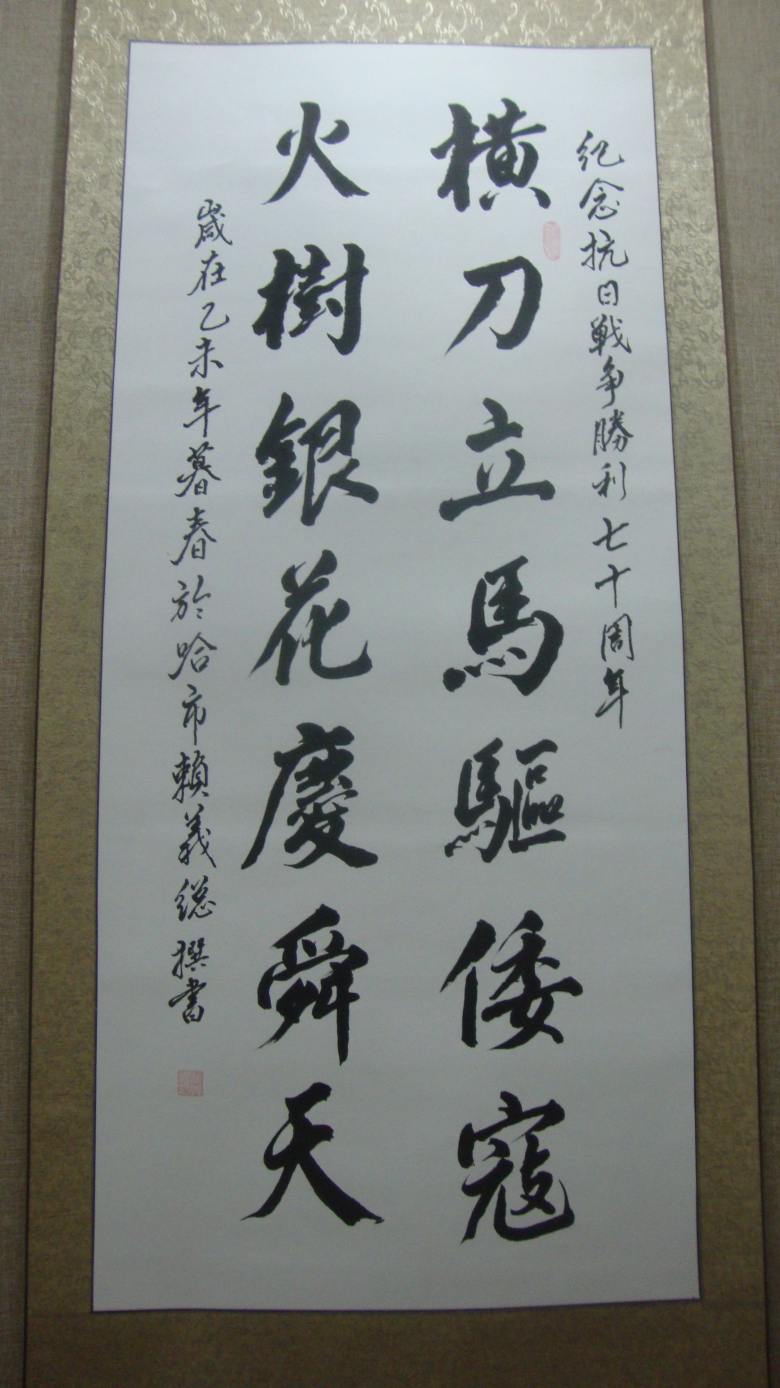 紀念抗日戦争勝利七十周年
横刀立馬驅倭寇
火樹銀花慶舜天
歲在乙未年暮春於哈市賴義總撰書